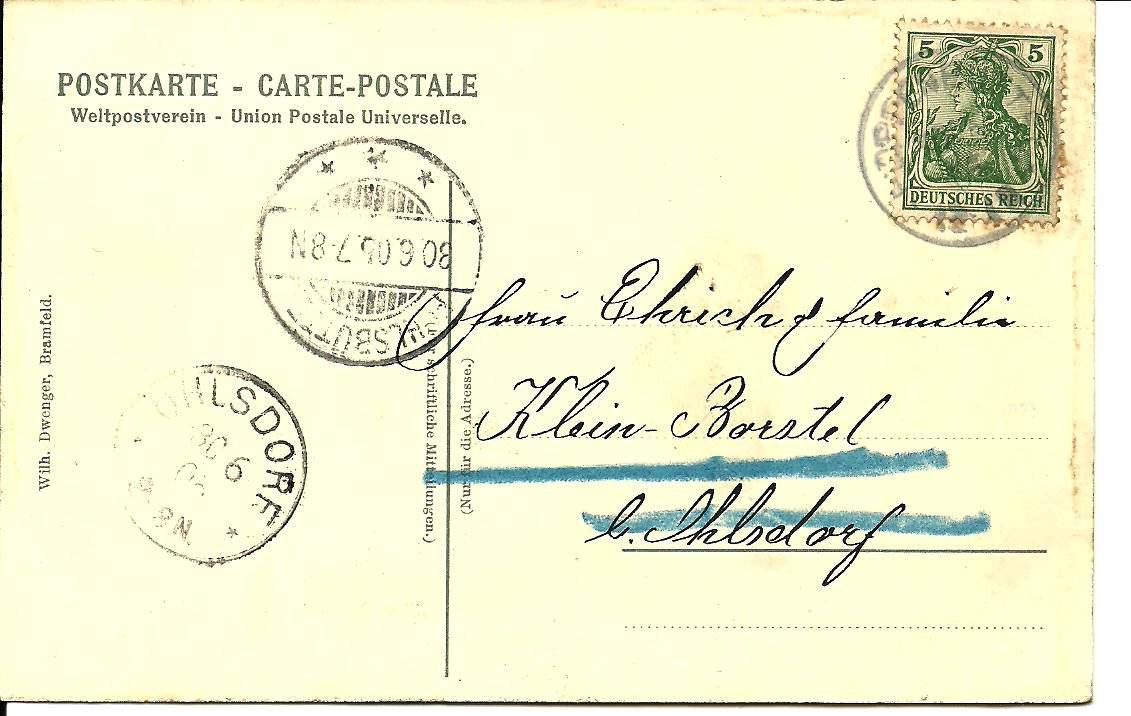 POSTKARTE - CARTE-POSTALE
Weltpostverein - Union Postale Universelle.
5 5
DEUTSCHES REICH
30.6.05.7-8N
OHLSDORF
30 6
8N
Wilh. Dwenger, Bramfeld.
(Für schriftliche Mitteilungen.)
(Nur für die Adresse.)
Frau Ehrich & familie
Klein-Borstel
b. Ohlsdorf